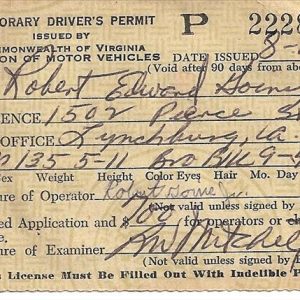 ORARY DRIVER'S PERMIT P 2228
ISSUED BY
MONWEALTH OF VIRGINIA
ION OF MOTOR VEHICLES DATE ISSUED 8-
(Void after 90 days from abo
Robert Edward
ENCE 1502 Pierce St
OFFICE Lynchburg, Va
135 5-11 Bro Blu 9-
Sex Weight Height Color Eyes Hair Mo. Day
ure of Operator Robert Jr.
(Not valid unless signed
ed Application and $ for operators or
ure of Examiner Mitchell
(Not valid unless signed by
is License Must Be Filled Out With Indelible P